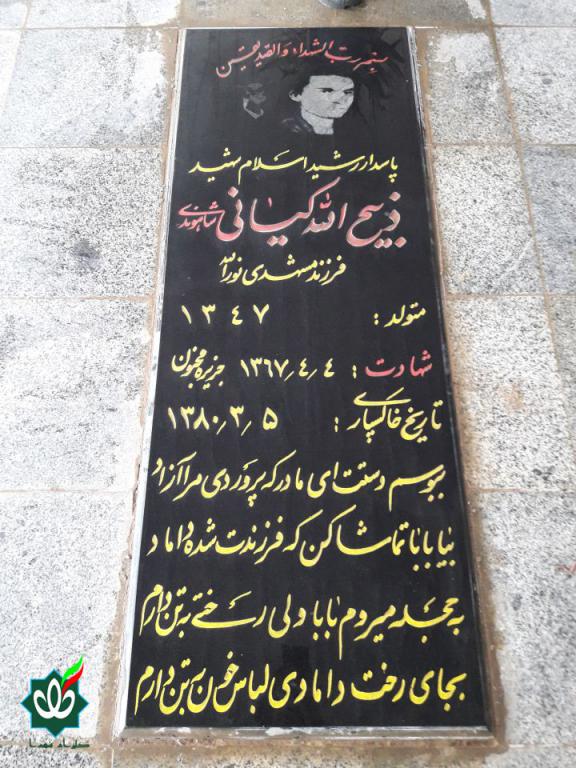 بسم رب الشهداء والصدیقین
پاسدار رشید اسلام شهید
ذبیح الله کیانی شاهوندی
فرزند مشهدی نورالله
متولد : ۱۳۴۷
شهادت : ۱۳۶۷٫۴٫۴ جزیره مجنون
تاریخ خاکسپاری : ۱۳۸۰٫۳٫۵
ببوسم دستت ای مادر که پروردی مرا آزاد
بیا بابا تماشا کن که فرزندت شده داماد
به حجله میروم بابا ولی رختی به تن دارم
بجای رخت دامادی لباس خون به تن دارم